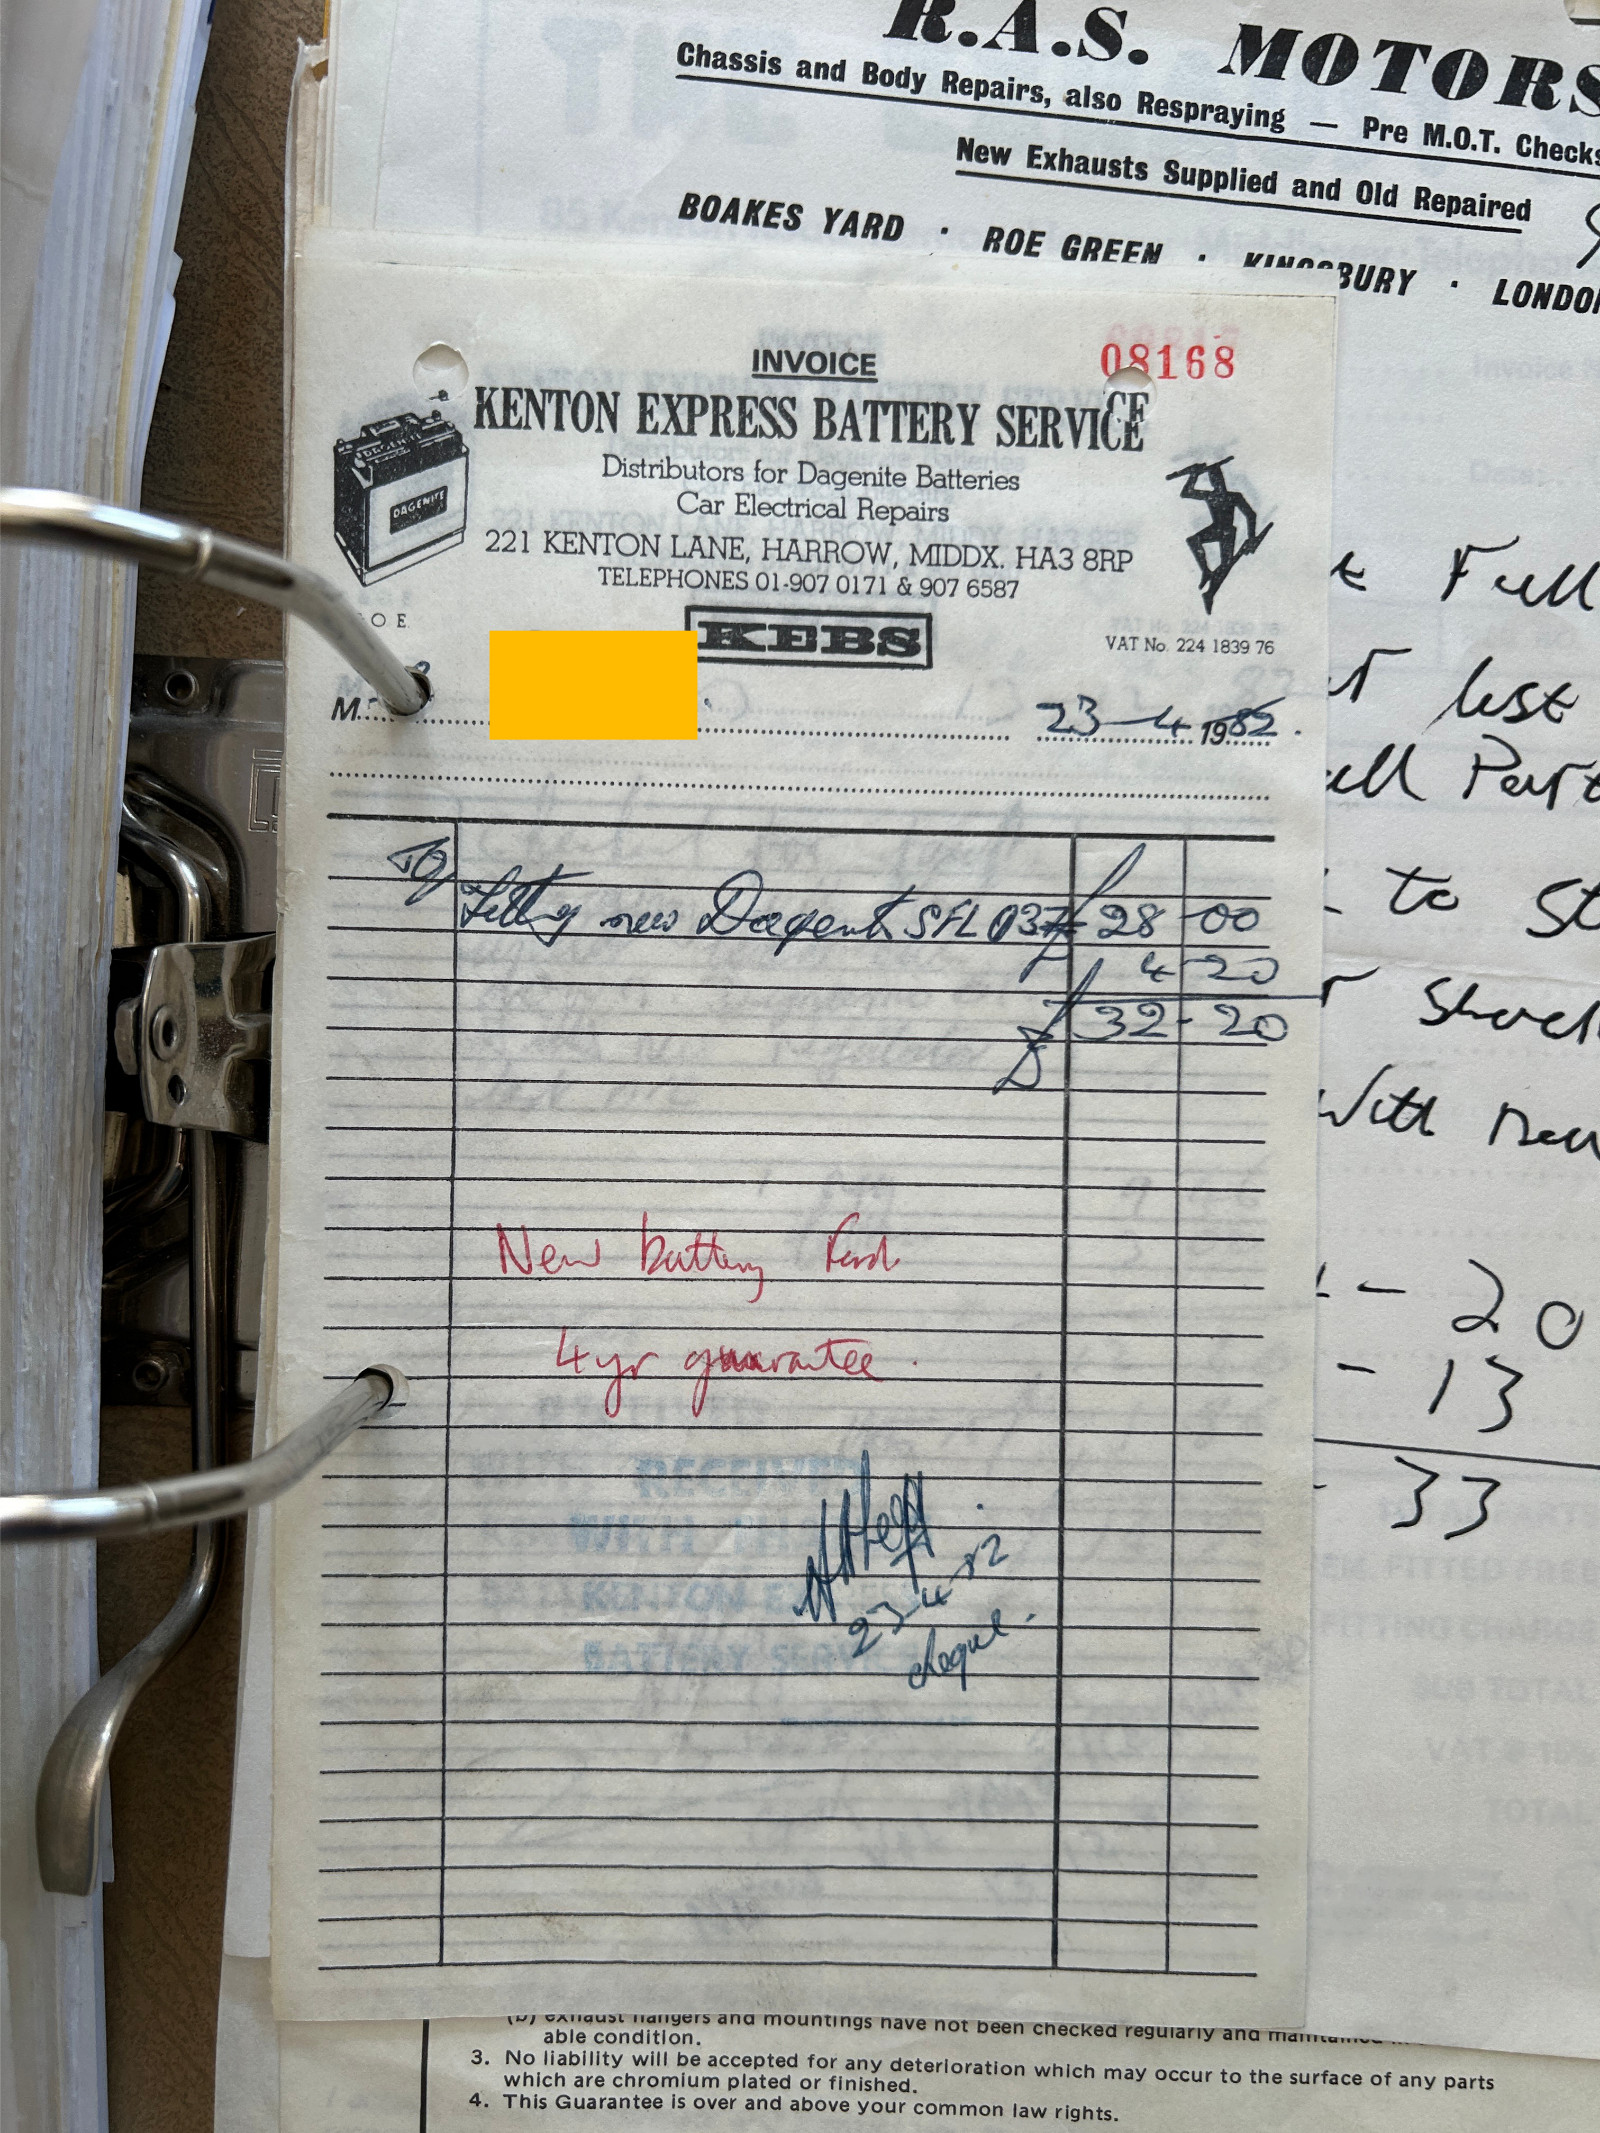 R.A.S. MOTORS
Chassis and Body Repairs, also Respraying — Pre M.O.T. Checks
New Exhausts Supplied and Old Repaired
BOAKES YARD · ROE GREEN · KINGSBURY · LONDON
INVOICE
08168
KENTON EXPRESS BATTERY SERVICE
Distributors for Dagenite Batteries
Car Electrical Repairs
221 KENTON LANE, HARROW, MIDDX. HA3 8RP
TELEPHONES 01-907 0171 & 907 6587
DAGENITE
DAGENITE
O E.
KEBS
VAT No. 224 1839 76
M
23-4 1982.
To
Fitting new Dagenite SFL 037 £ 28-00
4-20
£ 32-20
New battery Ford
4 yr guarantee.
RECEIVED
WITH THANKS
KENTON EXPRESS
BATTERY SERVICE
23-4-82
cheque.
Full
lost
Part
to St
With new
- 20
- 13
- 33
(b) exhaust hangers and mountings have not been checked regularly and
able condition.
3. No liability will be accepted for any deterioration which may occur to the surface of any parts
which are chromium plated or finished.
4. This Guarantee is over and above your common law rights.